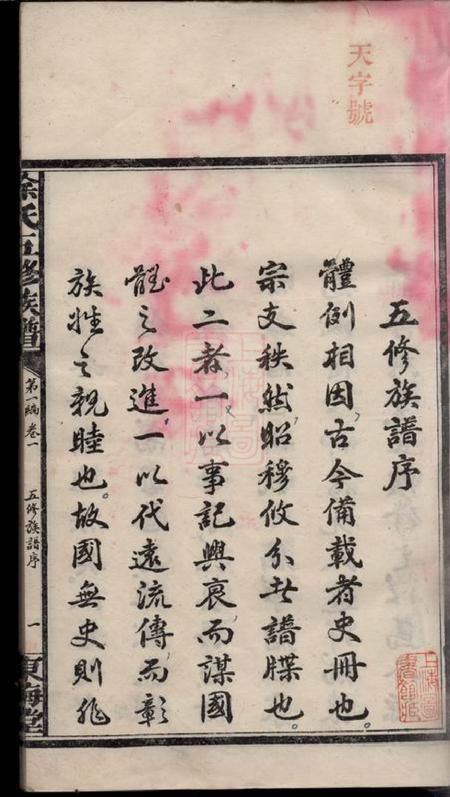 天字號
五修族譜序
體例相因,古今備載者史冊也。
宗支秩然,昭穆攸分者譜牒也。
此二者,一以事記興衰,而謀國
體之改進,一以代遠流傳,而彰
族姓之親睦也。故國無史則非
徐氏五修族譜
第一編 卷一
五修族譜序
一
東海堂